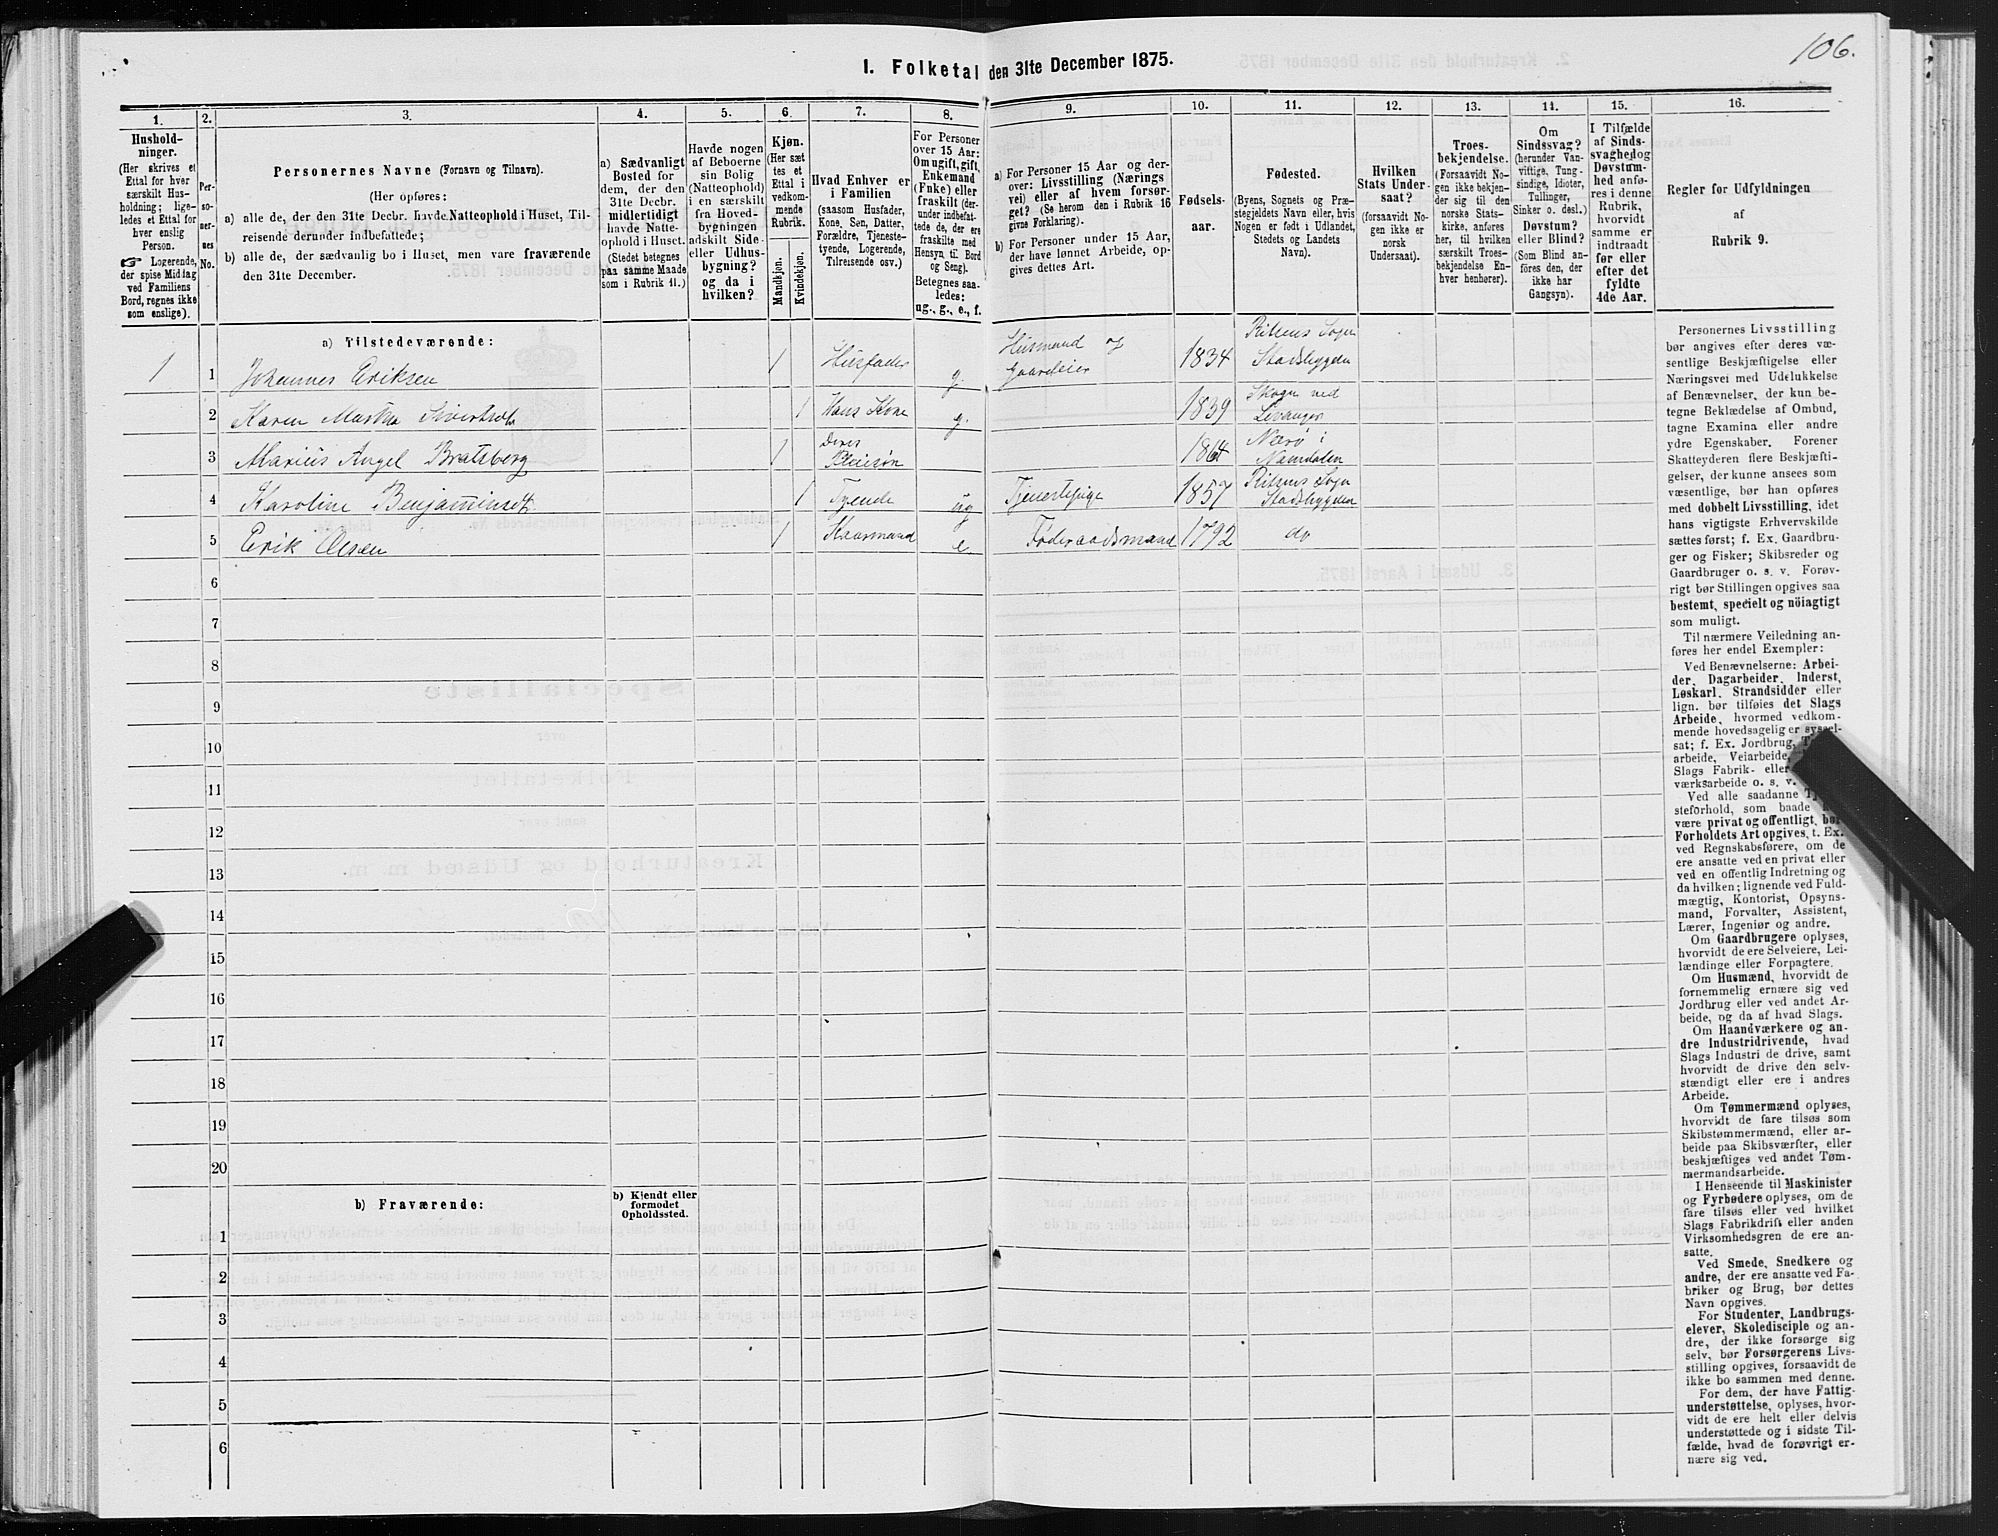 106.
I. Folketal den 31te December 1875.
1.
Hushold-
ninger.
(Her skrives et
Ettal for hver
særskilt Hus-
holdning; lige-
ledes et Ettal for
hver enslig
Person.
☞ Logerende,
der spise Middag
ved Familiens
Bord, regnes ikke
som enslige).
2.
Per-
so-
ner-
nes
No.
3.
Personernes Navne (Fornavn og Tilnavn).
(Her opføres:
a) alle de, der den 31te Decbr. havde Natteophold i Huset, Til-
reisende derunder indbefattede;
b) alle de, der sædvanlig bo i Huset, men vare fraværende
den 31te December.
4.
a) Sædvanligt
Bosted for
dem, der den
31te Decbr.
midlertidigt
havde Natte-
ophold i Huset.
(Stedet betegnes
paa samme Maade
som i Rubrik 11.)
5.
Havde nogen
af Beboerne
sin Bolig
(Natteophold)
i en særskilt
fra Hoved-
bygningen
adskilt Side-
eller Udhus-
bygning?
og da i
hvilken?
6.
Kjøn.
(Her sæt-
tes et
Ettal i
vedkom-
mende
Rubrik.
Mandkjøn.
Kvindekjøn.
7.
Hvad Enhver er
i Familien
(saasom Husfader,
Kone, Søn, Datter,
Forældre, Tjeneste-
tyende, Logerende,
Tilreisende osv.)
8.
For Personer
over 15 Aar:
Om ugift, gift,
Enkemand
(Enke) eller
fraskilt (der-
under indbefat-
tede de, der ere
fraskilte med
Hensyn til Bord
og Seng).
Betegnes saa-
ledes:
ug., g., e., f.
9.
a) For Personer 15 Aar og der-
over: Livsstilling (Nærings-
vei) eller af hvem forsør-
get? (Se herom den i Rubrik 16
givne Forklaring).
b) For Personer under 15 Aar,
der have lønnet Arbeide, op-
gives dettes Art.
10.
Fødsels-
aar.
11.
Fødested.
(Byens, Sognets og Præ-
stegjeldets Navn eller, hvis
Nogen er født i Udlandet,
Stedets og Landets
Navn).
12.
Hvilken
Stats Under-
saat?
(forsaavidt No-
gen ikke er
norsk
Undersaat).
13.
Troes-
bekjendelse.
(Forsaavidt No-
gen ikke bekjen-
der sig til den
norske Stats-
kirke, anføres
her, til hvilken
særskilt Troes-
bekjendelse En-
hver henhører).
14.
Om
Sindssvag?
(herunder Van-
vittige, Tung-
sindige, Idioter,
Tullinger,
Sinker o. desl.)
Døvstum?
eller Blind?
(Som Blind an-
føres den, der
ikke har
Gangsyn).
15.
I Tilfælde
af Sinds-
svaghed og
Døvstum-
hed anfø-
res i denne
Rubrik,
hvorvidt
samme er
indtraadt
før eller
efter det
fyldte
4de Aar.
16.
Regler for Udfyldningen
af
Rubrik 9.
a) Tilstedeværende:
1 1 Johannes Eriksen 1 Husfader g. Husmand gaardeier 1834 Ritsens Sogn Stadsbygden
2 Karen Martha 1 Hans Kone g. 1839 Skogn ved Levanger
3 Marius Angel Bratsberg 1 Deres Pleiesøn 1864 Nærø i Namdalen
4 Karoline Benjaminsdt. 1 Tyende ug Tjenestepige 1857 Ritsens Sogn Stadsbygden
5 Erik Olsen 1 Kaarmand e Føderaadsmand 1792 do
6
7
8
9
10
11
12
13
14
15
16
17
18
19
20
b) Fraværende:
b) Kjendt eller
formodet
Opholdssted.
1
2
3
4
5
6
Personernes Livsstilling
bør angives efter deres væ-
sentlige Beskjæftigelse eller
Næringsvei med Udelukkelse
af Benævnelser, der kun be-
tegne Beklædelse af Ombud,
tagne Examina eller andre
ydre Egenskaber. Forener
Skatteyderen flere Beskjæfti-
gelser, der kunne ansees som
væsentlige, bør han opføres
med dobbelt Livsstilling, idet
hans vigtigste Erhvervskilde
sættes først; f. Ex. Gaardbru-
ger og Fisker; Skibsreder og
Gaardbruger o. s. v. Forøv-
rigt bør Stillingen opgives saa
bestemt, specielt og nöiagtigt
som muligt.
Til nærmere Veiledning an-
føres her endel Exempler:
Ved Benævnelserne: Arbei-
der, Dagarbeider, Inderst,
Løskarl, Strandsidder eller
lign. bør tilføies det Slags
Arbeide, hvormed vedkom-
mende hovedsagelig er syssel-
sat; f. Ex. Jordbrug,
arbeide, Veiarbeide,
Slags Fabrik- eller
værksarbeide o. s. v.
Ved alle saadanne
steforhold, som baade
være privat og offentligt, bør
Forholdets Art opgives, t. Ex.
ved Regnskabsførere, om de
ere ansatte ved en privat eller
ved en offentlig Indretning og
da hvilken; lignende ved Fuld-
mægtig, Kontorist, Opsyns-
mand, Forvalter, Assistent,
Lærer, Ingeniør og andre.
Om Gaardbrugere oplyses,
hvorvidt de ere Selveiere, Lei-
lændinge eller Forpagtere.
Om Husmænd, hvorvidt de
fornemmelig ernære sig ved
Jordbrug eller ved andet Ar-
beide, og da af hvad Slags.
Om Haandværkere og an-
dre Industridrivende, hvad
Slags Industri de drive, samt
hvorvidt de drive den selv-
stændigt eller ere i andres
Arbeide.
Om Tømmermænd oplyses,
hvorvidt de fare tilsøs som
Skibstømmermænd, eller ar-
beide paa Skibsværfter, eller
beskjæftiges ved andet Tøm-
mermandsarbeide.
I Henseende til Maskinister
og Fyrbødere oplyses, om de
fare tilsøs eller ved hvilket
Slags Fabrikdrift eller anden
Virksomhedsgren de ere an-
satte.
Ved Smede, Snedkere og
andre, der ere ansatte ved Fa-
briker og Brug, bør dettes
Navn opgives.
For Studenter, Landbrugs-
elever, Skoledisciple og an-
dre, der ikke forsørge sig
selv, bør Forsørgerens Livs-
stilling opgives, forsaavidt de
ikke bo sammen med denne.
For dem, der have Fattig-
understøttelse, oplyses, hvor-
vidt de ere helt eller delvis
understøttede og i sidste Til-
fælde, hvad de forøvrigt er-
nære sig ved.